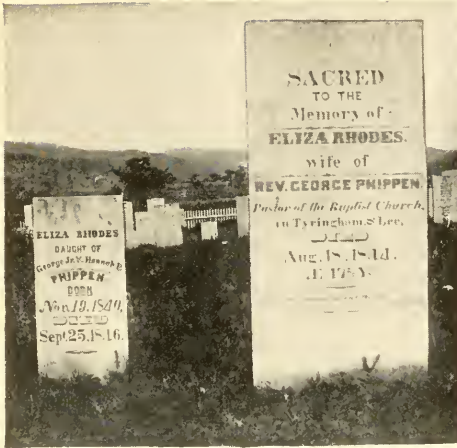 ELIZA RHODES
DAUGHT OF
George Jr. & Hannah
PHIPPEN
BORN
Nov. 19. 1840,
DIED
Sept. 25. 1846.
SACRED
TO THE
Memory of
ELIZA RHODES.
wife of
REV. GEORGE PHIPPEN.
Pastor of the Baptist Church,
in Tyringham & Lee,
DIED
Aug. 18. 1841.